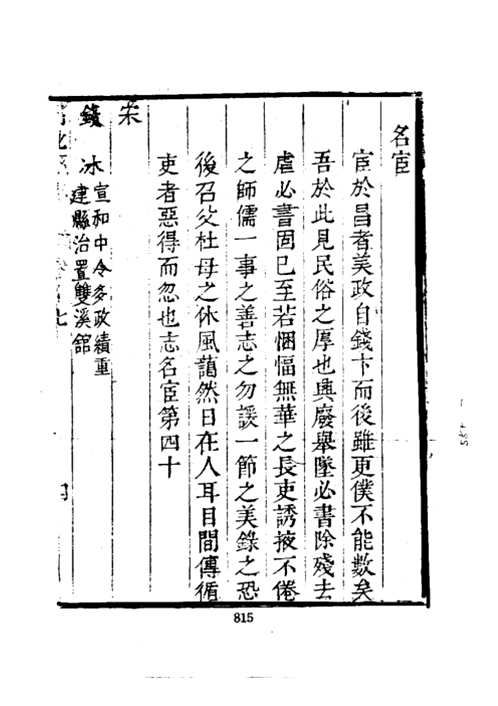 名宦
宦於昌者美政自錢卞而後雖更僕不能數矣
吾於此見民俗之厚也興廢舉墜必書除殘去
虐必書固已至若悃愊無華之長吏誘掖不倦
之師儒一事之善志之勿諼一節之美錄之恐
後召父杜母之休風藹然日在人耳目間傳循
吏者惡得而忽也志名宦第四十
宋
錢 冰 宣和中令多政績重
建縣治置雙溪館
815